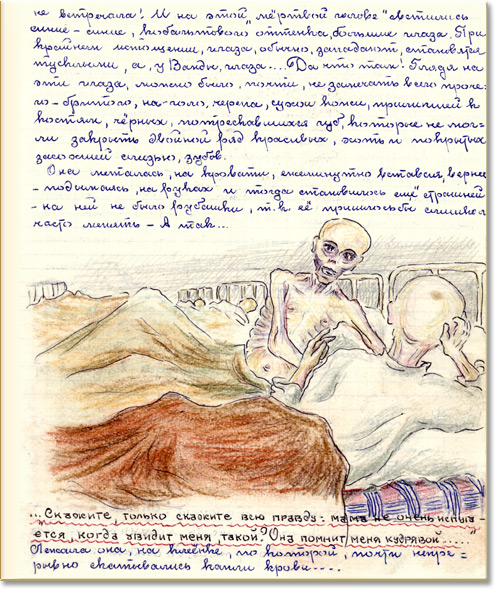 не встречала! И на этой "мёртвой голове" светились
синие-синие, кобальтового оттенка, большие глаза. При
крайнем истощении, глаза, обычно, западают, становятся
тусклыми, а, у Ванды, глаза.... Да что там! Глядя на
эти глаза, можно было, почти, не замечать всего проче-
го-бритого, на-голо, черепа, сухой кожи, прилипшей к
костям, чёрных, потрескавшихся губ, которые не мог-
ли закрыть двойной ряд красивых, хоть и покрытых
засохшей слизью, зубов.
Она металась, на кровати, ежеминутно вставая, вернее
-подымаясь, на руках и тогда становилось ещё страшней
-на ней не было рубашки, т.к. её пришлось бы слишком
часто менять-А так...
... Скажите, только скажите всю правду: мама не очень испуга-
ется, когда увидит меня, такой? Она помнит меня кудрявой....."
Лежала она, на клеёнке, по которой, почти непре=
рывно скатывались капли крови....